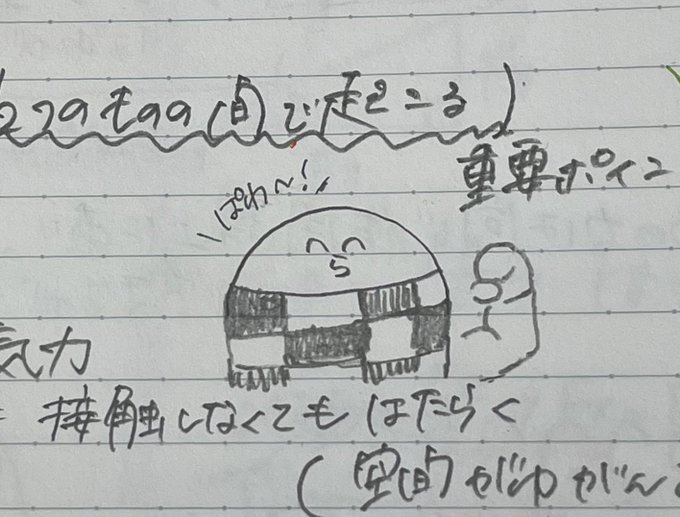 2つのものの間で起こる)
重要ポイン
ぱわ〜!
気力
接触しなくても はたらく
(空間がゆがん